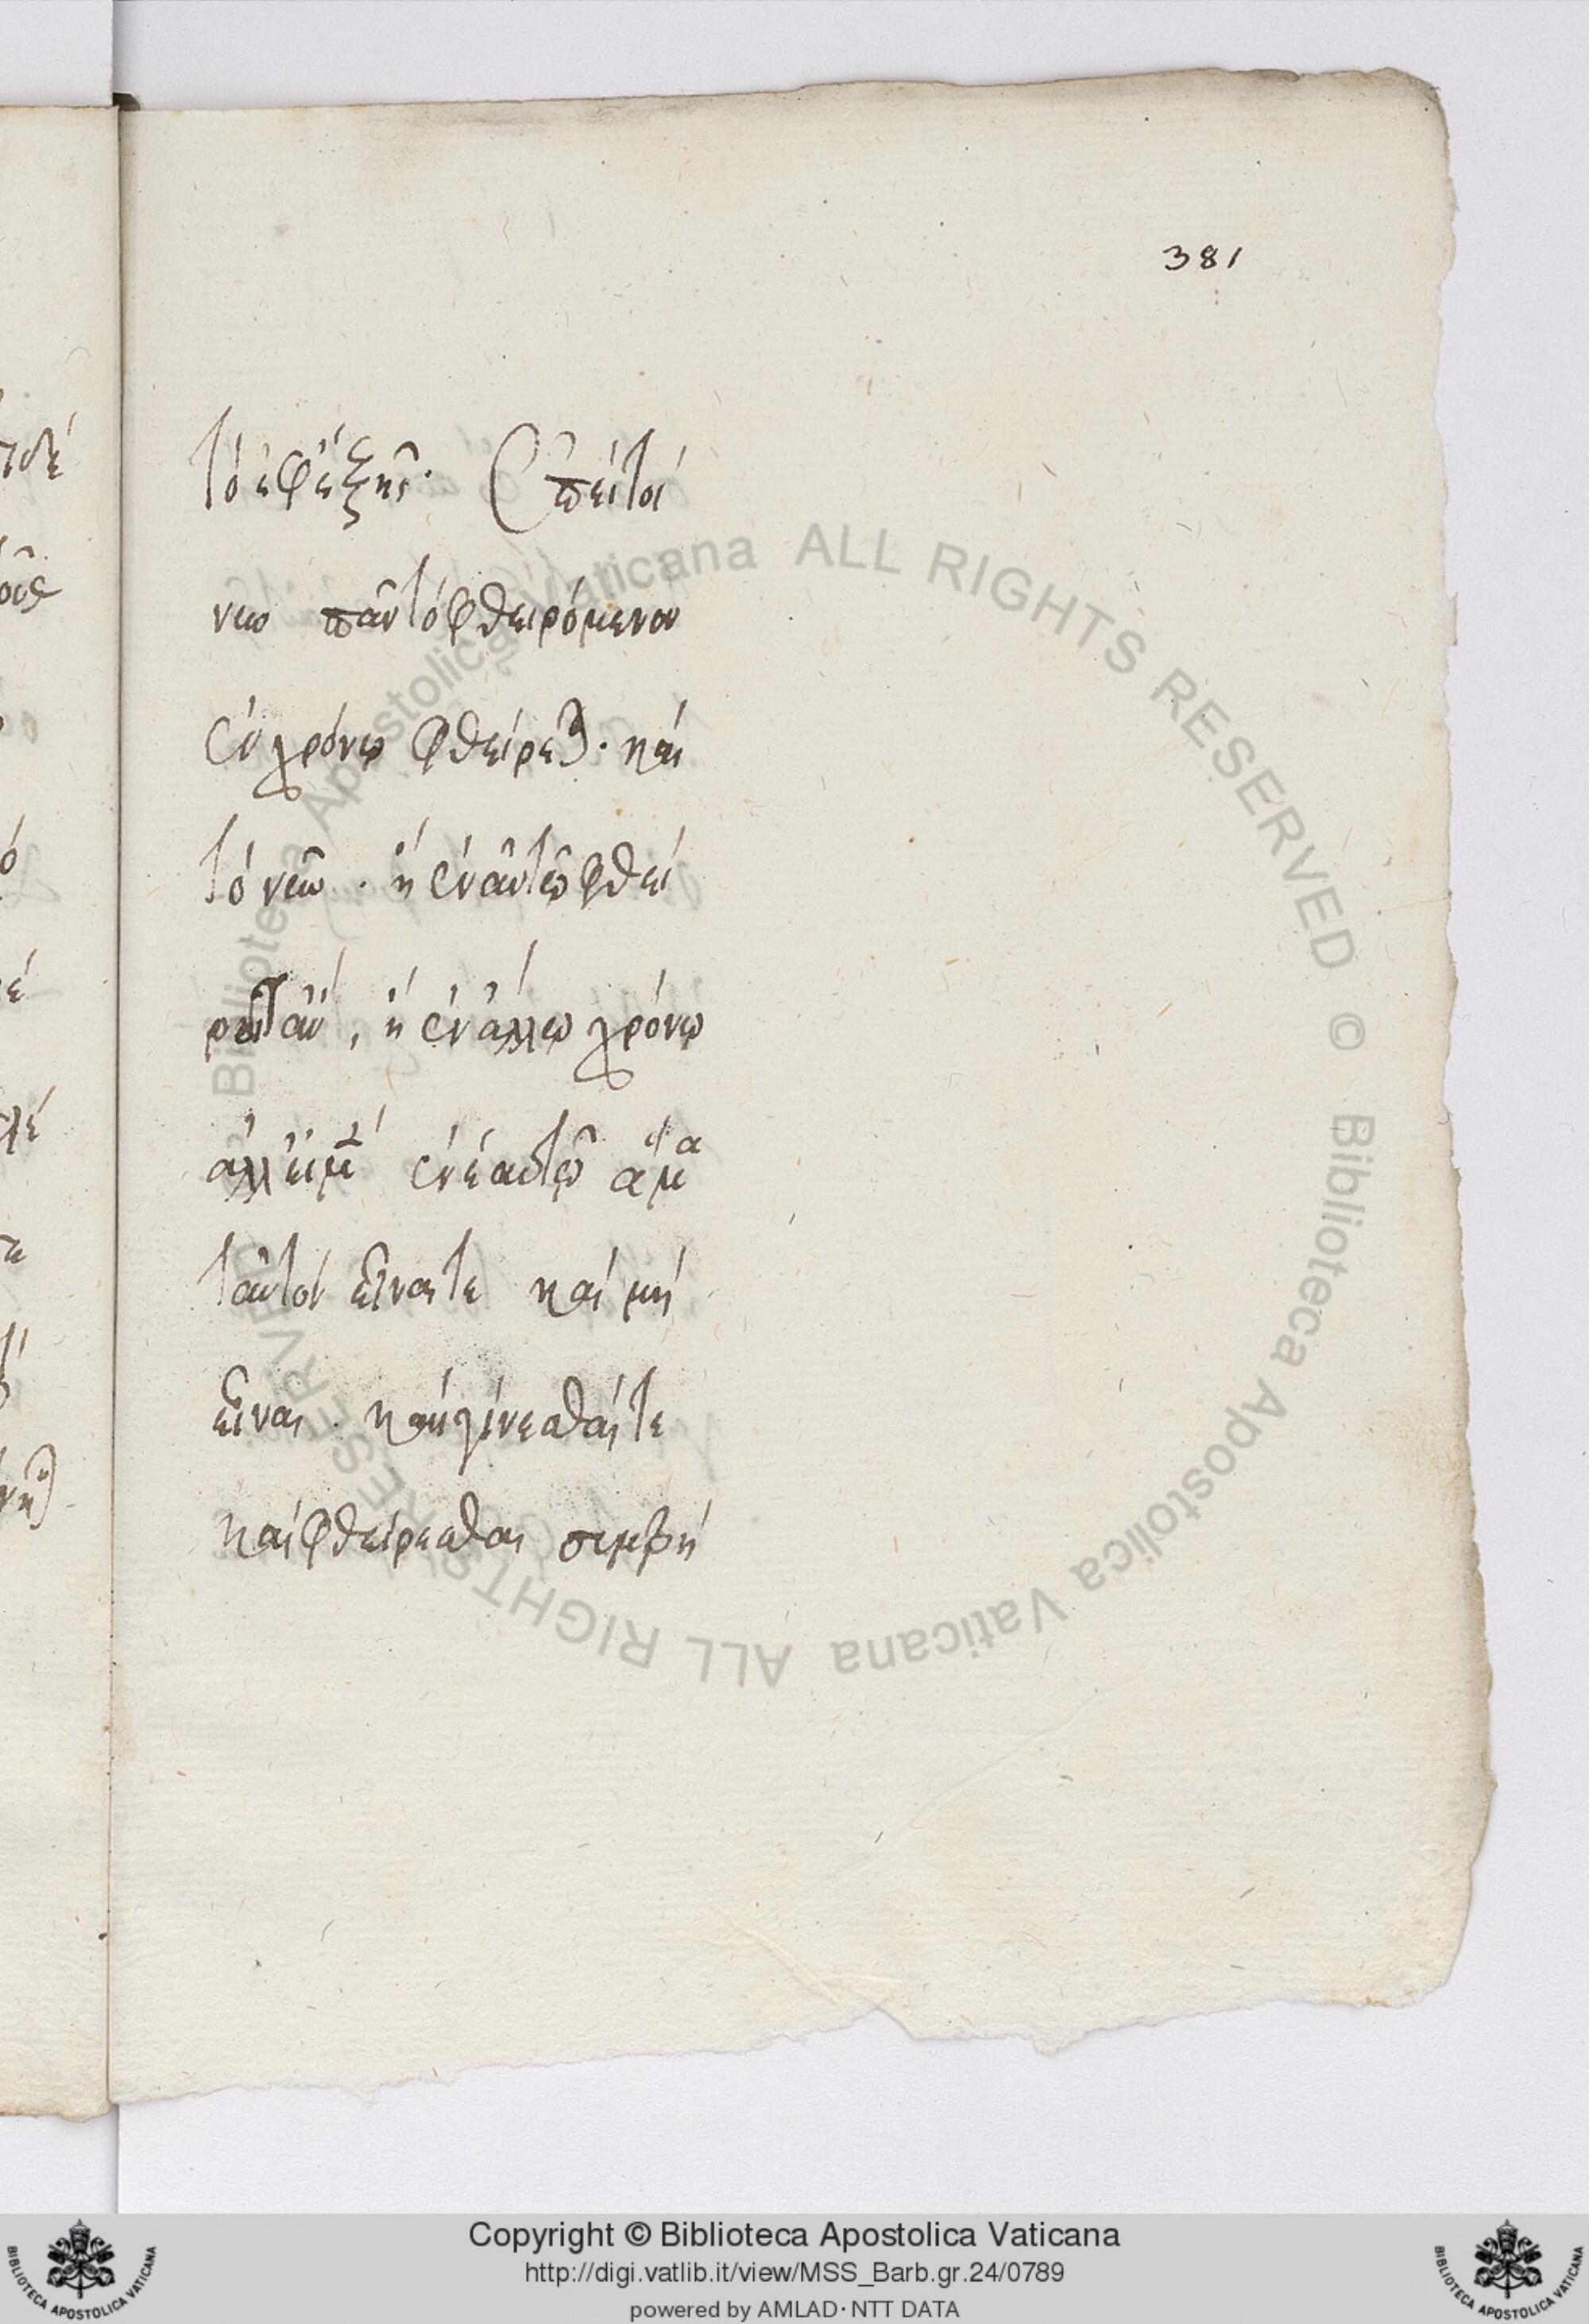 381
τὸ ἐφέξῆς· ἐπεὶ τοί
νυν πᾶν τὸ φθειρόμενον
ἐν χρόνῳ φθείρεται· καὶ
τὸ νῦν · ἢ ἐν αὐτῷ φθεί
ροιτ ἂν, ἢ ἐν ἄλλῳ χρόνῳ
ἀλλ εἰ μὲν ἐν ἑαυτῷ ἅμα
ταὐτὸν εἶναί τε καὶ μὴ
εἶναι · καὶ γίνεσθαί τε
καὶ φθείρεσθαι συμβή
Biblioteca Apostolica Vaticana ALL RIGHTS RESERVED © Biblioteca Apostolica Vaticana ALL RIGHTS RESERVED
Copyright © Biblioteca Apostolica Vaticana
http://digi.vatlib.it/view/MSS_Barb.gr.24/0789
powered by AMLAD·NTT DATA
BIBLIOTECA APOSTOLICA VATICANA
BIBLIOTECA APOSTOLICA VATICANA